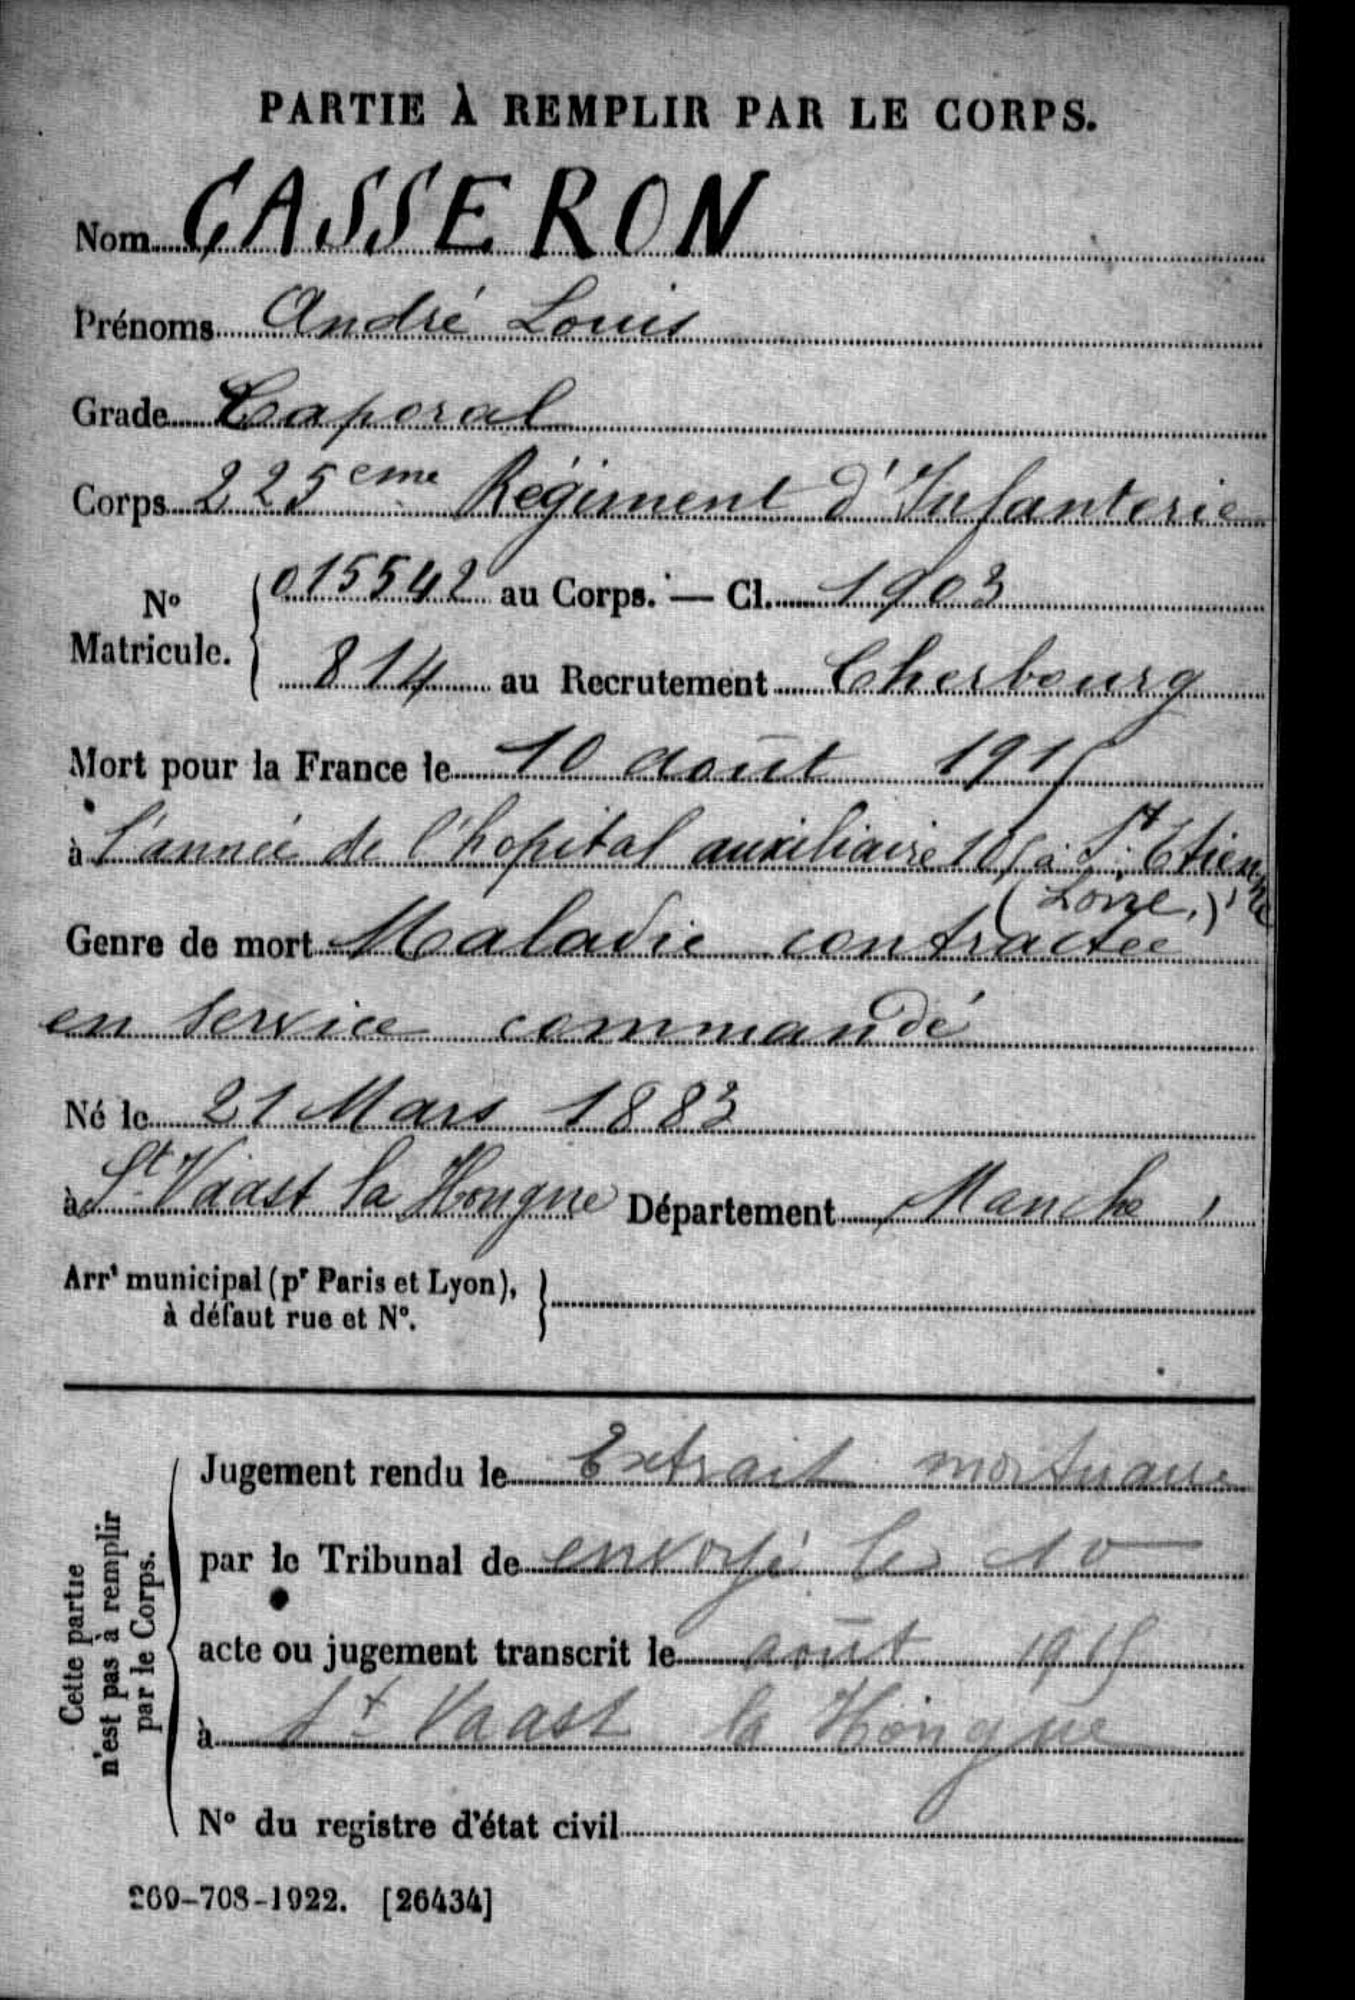 PARTIE À REMPLIR PAR LE CORPS.
Nom CASSERON
Prénoms André Louis
Grade Caporal
Corps 225eme Régiment d'Infanterie
No Matricule. { 015542 au Corps. — Cl. 1903
814 au Recrutement Cherbourg
Mort pour la France le 10 août 1915
à l'année de l'hopital auxiliaire 105 à St Etienne
(Loire,)
Genre de mort Maladie contractée
en service commandé
Né le 21 Mars 1883
à St Vaast la Hougue Département Manche
Arrt municipal (pr Paris et Lyon),
à défaut rue et No. }
Cette partie
n'est pas à remplir
par le Corps.
Jugement rendu le Extrait mortuaire
par le Tribunal de envoyé le 10
acte ou jugement transcrit le août 1915
à St Vaast la Hougue
No du registre d'état civil
269-708-1922. [26434]